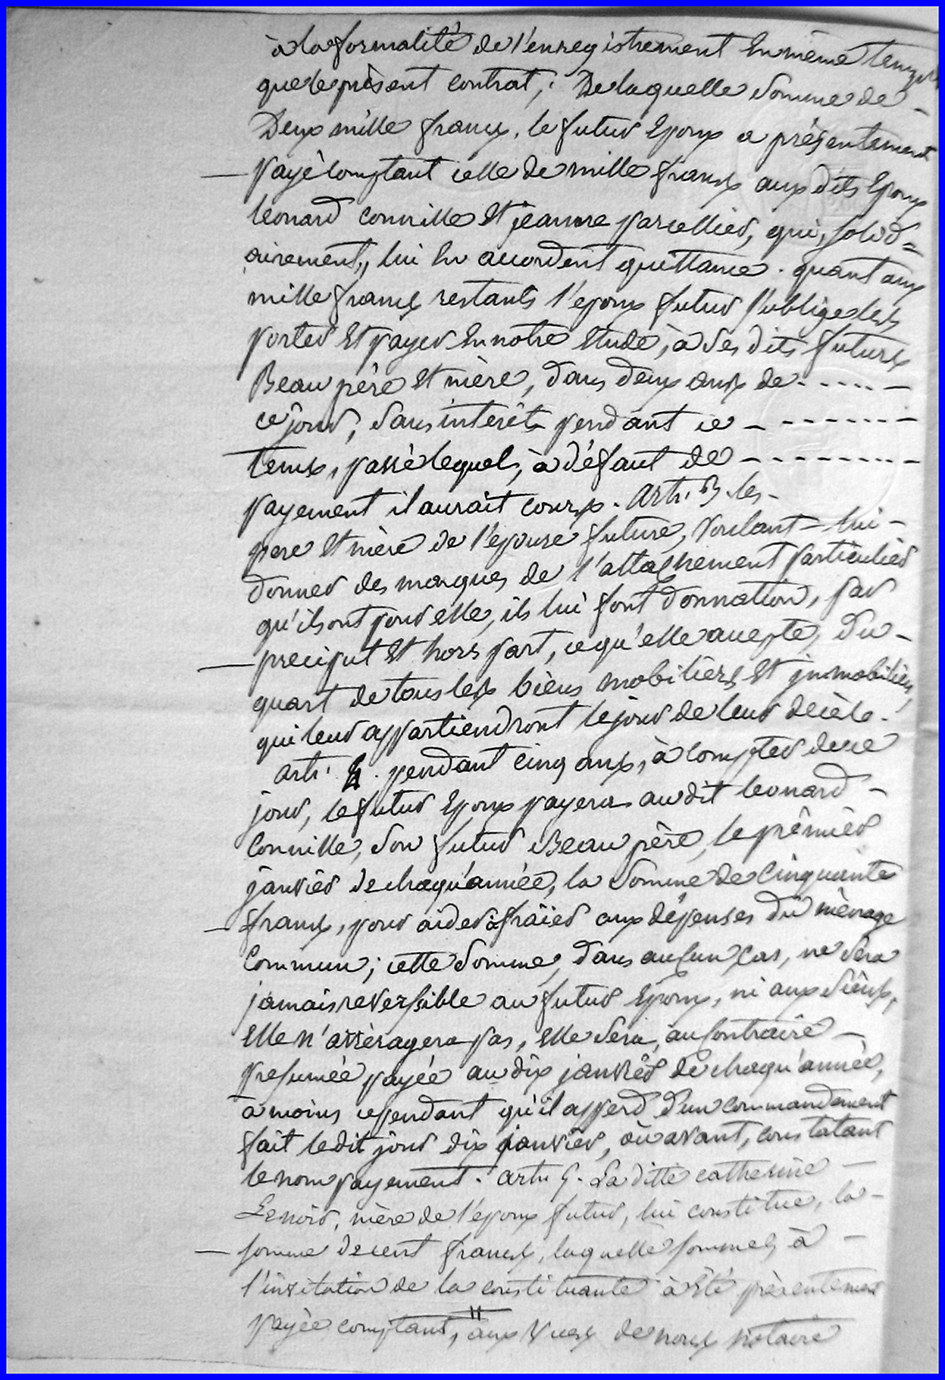 à la formalité de l'enregistrement en même temps
que le présent contrat; De laquelle somme de -
Deux mille francs, le futur Epoux a présentement
- payé comptant celle de mille francs aux dits Epoux
leonard conville et jeanne parcellier, qui, solid=
airement, lui en accordent quittance. quant aux
mille francs restants l'epoux futur s'oblige les
porter et payer en notre Etude, à ses dits futurs
Beau père et mère, dans deux ans de - - - - -
ce jour, sans intérêts pendant ce - - - - - - -
tems, passé lequel, à défaut de - - - - - - - -
payement il aurait cours. Art. 3. les -
pere et mère de l'epouse future, voulant - lui -
donner des marques de l'attachement particulier
qu'ils ont pour elle, ils lui font donnation, par
- preciput et hors part, ce qu'elle accepte, du -
quart de tous les biens mobiliers et immobiliers,
qui leur appartiendront le jour de leur décès.
Art. 4. pendant cinq ans, à compter de ce
jour, le futur Epoux payera au dit leonard -
Conville, son futur Beau père, le prémier
janvier de chaqu'année, la somme de Cinquante
- francs, pour aider à fraïer aux dépenses du mènage
Commun; cette somme, dans aucun cas, ne sera
jamais reversible au futur Epoux, ni aux siens,
Elle n'arrèragera pas, elle sera, au contraire -
presumée payée au dix janvier de chaqu'année,
à moins cependant qu'il apperd d'un commandement
fait le dit jour dix janvier, ou avant, constatant
le non payement. art. 5. La ditte catherine -
Lenoir, mère de l'epoux futur, lui constitue, la -
- somme de cent francs, laquelle somme, à -
l'invitation de la constituante à été présentement
payée comptant, aux vues de nous notaire